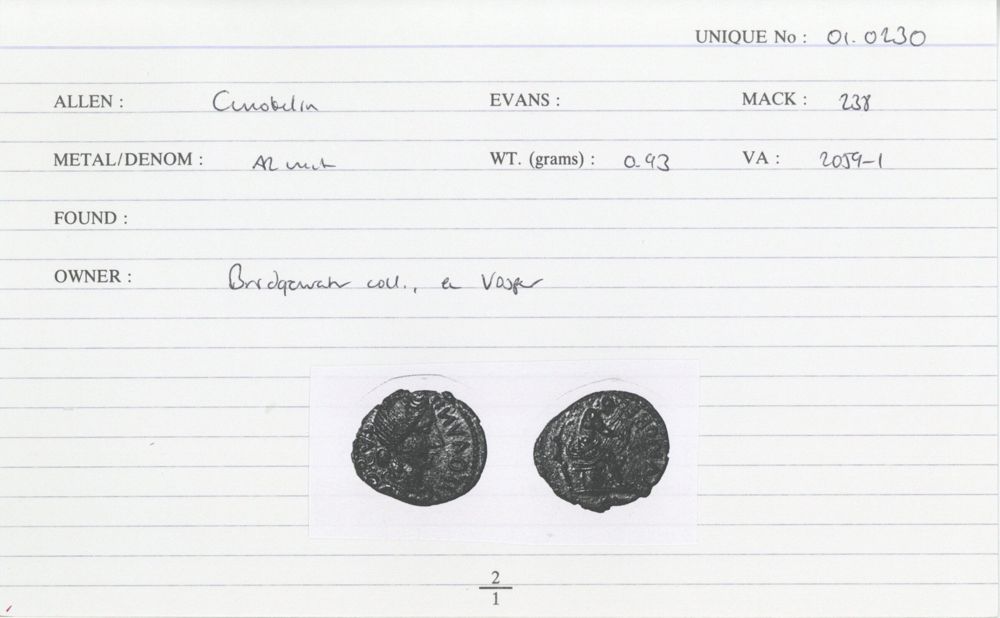 UNIQUE No : 01.0230
ALLEN : Cunobelin EVANS : MACK : 238
METAL/DENOM : AR unit WT. (grams) : 0.93 VA : 2059-1
FOUND :
OWNER : Bridgewater coll., ex Vosper
2
1